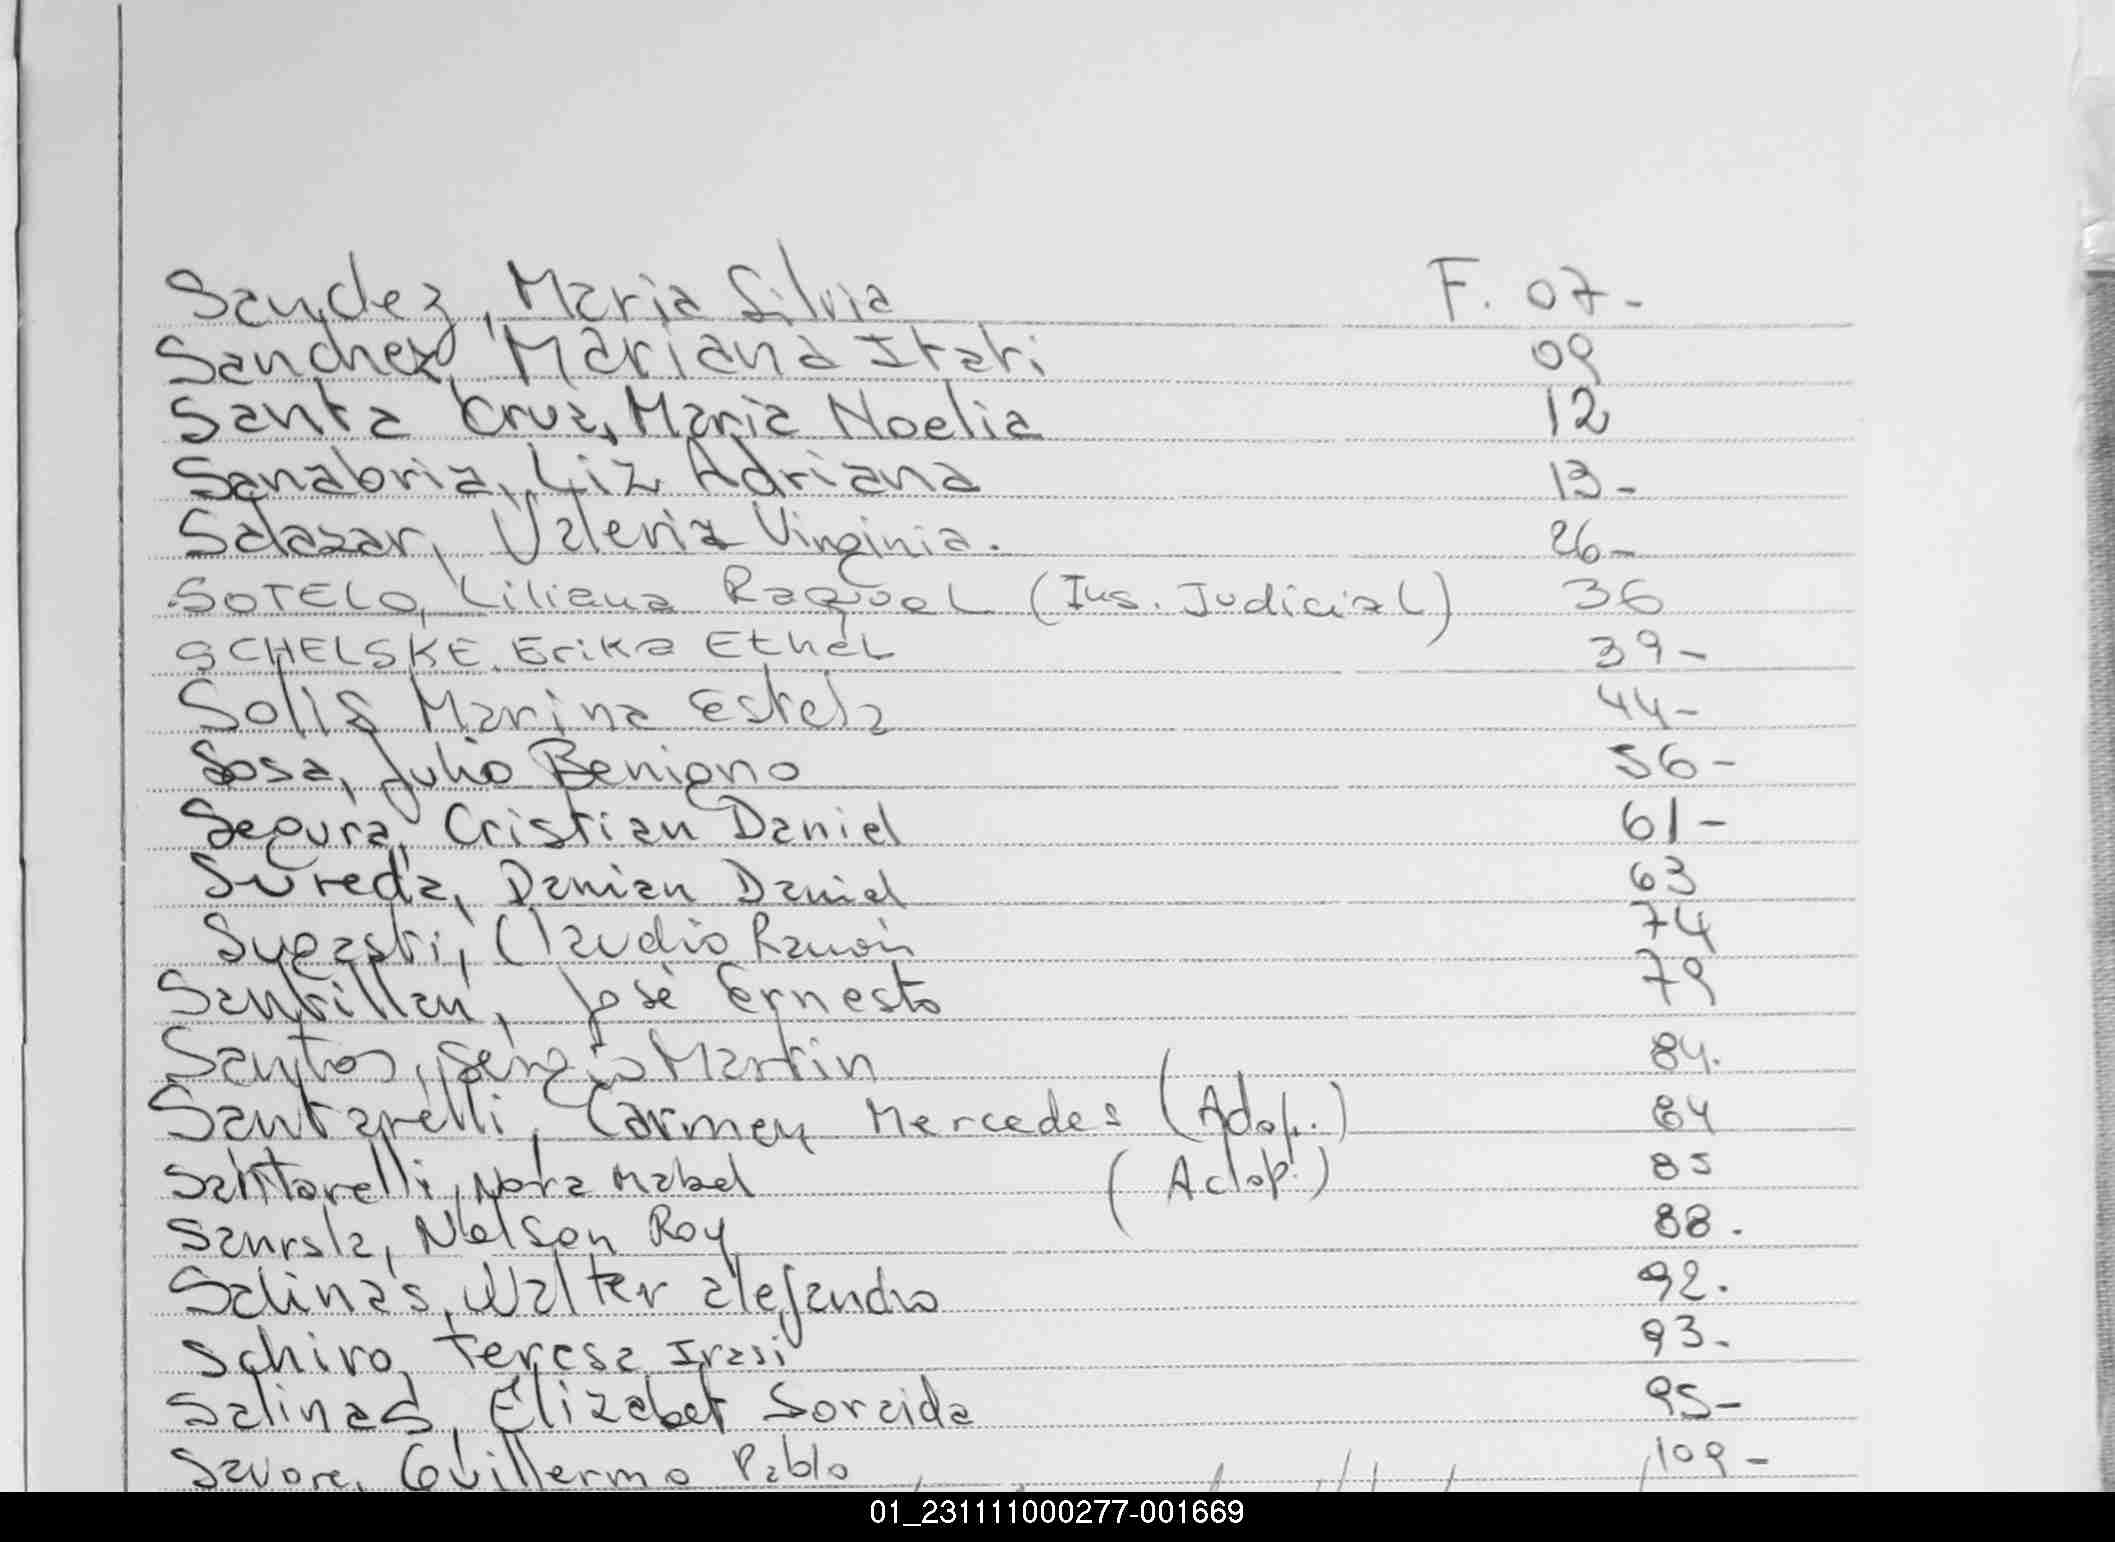 Sanchez, Maria Silvia F. 07-
Sanchez, Mariana Itati 09
Santa Cruz, Maria Noelia 12
Sanabria, Liz Adriana 13-
Salazar, Valeria Virginia. 26-
SOTELO, Liliana Raquel (Ins. Judicial) 36
SCHELSKE. Erika Ethel 39-
Solis Marina Estela 44-
Sosa, Julio Benigno 56-
Segura, Cristian Daniel 61-
Sureda, Damian Daniel 63
Claudio Ramón 74
Santillan, José Ernesto 79
Santos, Sergio Martin 84.
Santarelli, Carmen Mercedes (Adop.) 84
Santarelli, Nora Mabel (Adop.) 85
Nelson Roy 88.
Salinas, Walter alejandro 92.
Schiro, Teresa 93-
Salinas, Elizabet Soraida 95-
Savore, Guillermo Pablo 109-
01_231111000277-001669